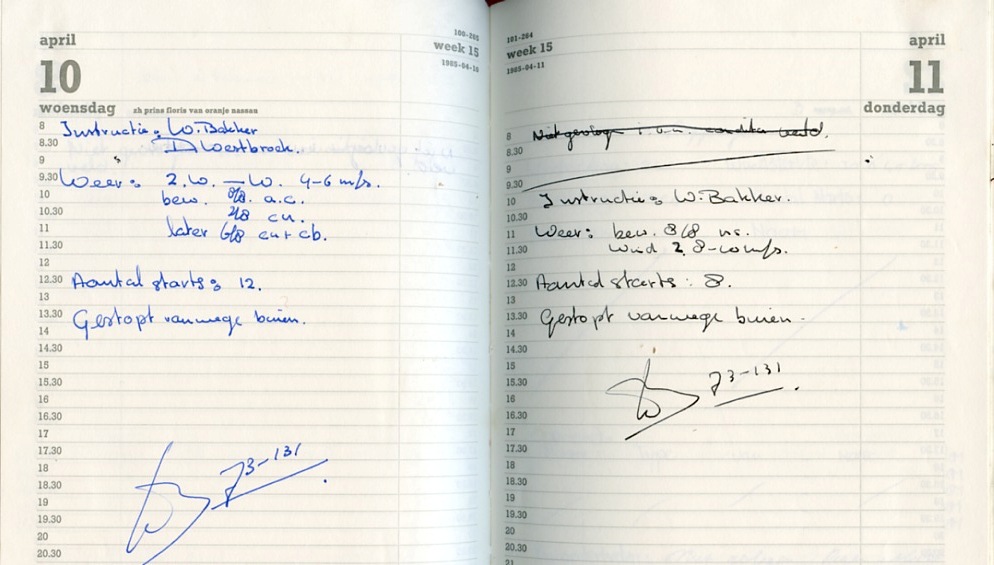 april
100-265
week 15
1985-04-10
10
woensdag zh prins floris van oranje nassau
8 Instructie: W. Bakker
8.30 D Westbroek.
9
9.30 Weer: Z.W. – W. 4-6 m/s.
10 bew. a.c.
10.30 2/8 cu.
11 later 6/8 cu + cb.
11.30
12
12.30 Aantal starts: 12.
13
13.30 Gestopt vanwege buien.
14
14.30
15
15.30
16
16.30
17
17.30
18 73-131
18.30
19
19.30
20
20.30
101-264
week 15
1985-04-11
april
11
donderdag
8 Niet gevlogen i.v.m.
8.30
9
9.30
10 Instructie: W. Bakker.
10.30
11 Weer: bew. 8/8 ns.
11.30 wind Z, 8-10 m/s.
12
12.30 Aantal starts: 8.
13
13.30 Gestopt vanwege buien.
14
14.30
15
15.30 73-131
16
16.30
17
17.30
18
18.30
19
19.30
20
20.30
21